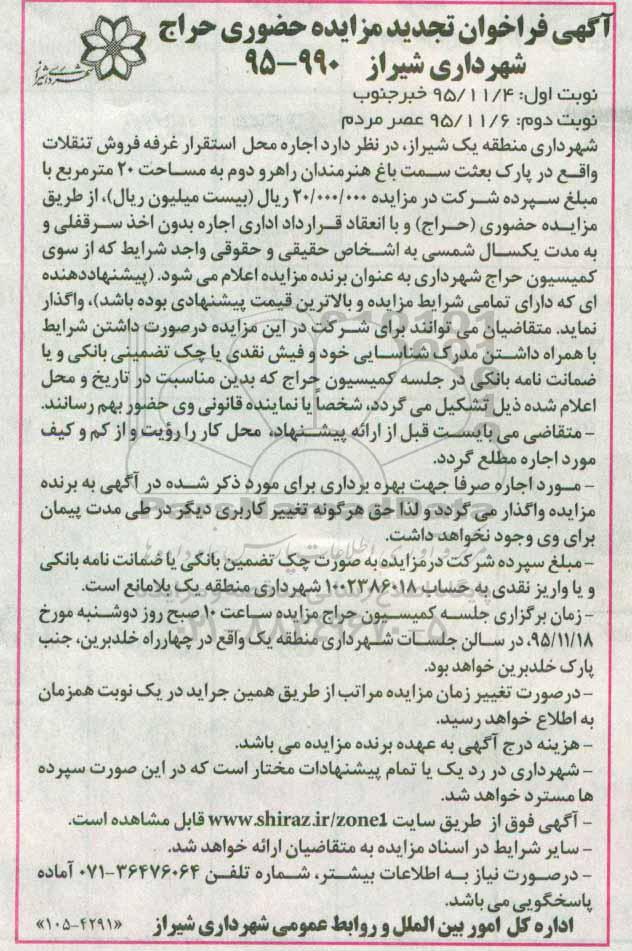 آگهی فراخوان تجدید مزایده حضوری حراج
شهرداری شیراز ۹۹۰-۹۵
نوبت اول: ۹۵/۱۱/۴ خبرجنوب
نوبت دوم: ۹۵/۱۱/۶ عصر مردم
شهرداری منطقه یک شیراز، در نظر دارد اجاره محل استقرار غرفه فروش تنقلات
واقع در پارک بعثت سمت باغ هنرمندان راهرو دوم به مساحت ۲۰ مترمربع با
مبلغ سپرده شرکت در مزایده ۲۰/۰۰۰/۰۰۰ ریال (بیست میلیون ریال)، از طریق
مزایده حضوری (حراج) و با انعقاد قرارداد اداری اجاره بدون اخذ سرقفلی و
به مدت یکسال شمسی به اشخاص حقیقی و حقوقی واجد شرایط که از سوی
کمیسیون حراج شهرداری به عنوان برنده مزایده اعلام می شود. (پیشنهاددهنده
ای که دارای تمامی شرایط مزایده و بالاترین قیمت پیشنهادی بوده باشد)، واگذار
نماید. متقاضیان می توانند برای شرکت در این مزایده درصورت داشتن شرایط
با همراه داشتن مدرک شناسایی خود و فیش نقدی یا چک تضمینی بانکی و یا
ضمانت نامه بانکی در جلسه کمیسیون حراج که بدین مناسبت در تاریخ و محل
اعلام شده ذیل تشکیل می گردد، شخصاً یا نماینده قانونی وی حضور بهم رسانند.
- متقاضی می بایست قبل از ارائه پیشنهاد، محل کار را رؤیت و از کم و کیف
مورد اجاره مطلع گردد.
- مورد اجاره صرفاً جهت بهره برداری برای مورد ذکر شده در آگهی به برنده
مزایده واگذار می گردد و لذا حق هرگونه تغییر کاربری دیگر در طی مدت پیمان
برای وی وجود نخواهد داشت.
- مبلغ سپرده شرکت در مزایده به صورت چک تضمین بانکی یا ضمانت نامه بانکی
و یا واریز نقدی به حساب ۱۰۰۲۳۸۶۰۱۸ شهرداری منطقه یک بلامانع است.
- زمان برگزاری جلسه کمیسیون حراج مزایده ساعت ۱۰ صبح روز دوشنبه مورخ
۹۵/۱۱/۱۸، در سالن جلسات شهرداری منطقه یک واقع در چهارراه خلدبرین، جنب
پارک خلدبرین خواهد بود.
- درصورت تغییر زمان مزایده مراتب از طریق همین جراید در یک نوبت همزمان
به اطلاع خواهد رسید.
- هزینه درج آگهی به عهده برنده مزایده می باشد.
- شهرداری در رد یک یا تمام پیشنهادات مختار است که در این صورت سپرده
ها مسترد خواهد شد.
- آگهی فوق از طریق سایت www.shiraz.ir/zone1 قابل مشاهده است.
- سایر شرایط در اسناد مزایده به متقاضیان ارائه خواهد شد.
- درصورت نیاز به اطلاعات بیشتر، شماره تلفن ۳۶۴۷۶۰۶۴-۰۷۱ آماده
پاسخگویی می باشد.
اداره کل امور بین الملل و روابط عمومی شهرداری شیراز «۱۰۵-۴۲۹۱»